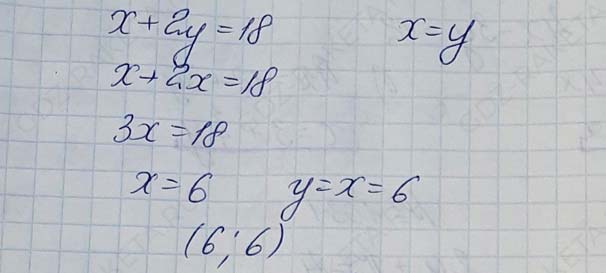 x+2y=18 x=y
x+2x=18
3x=18
x=6 y=x=6
(6;6)